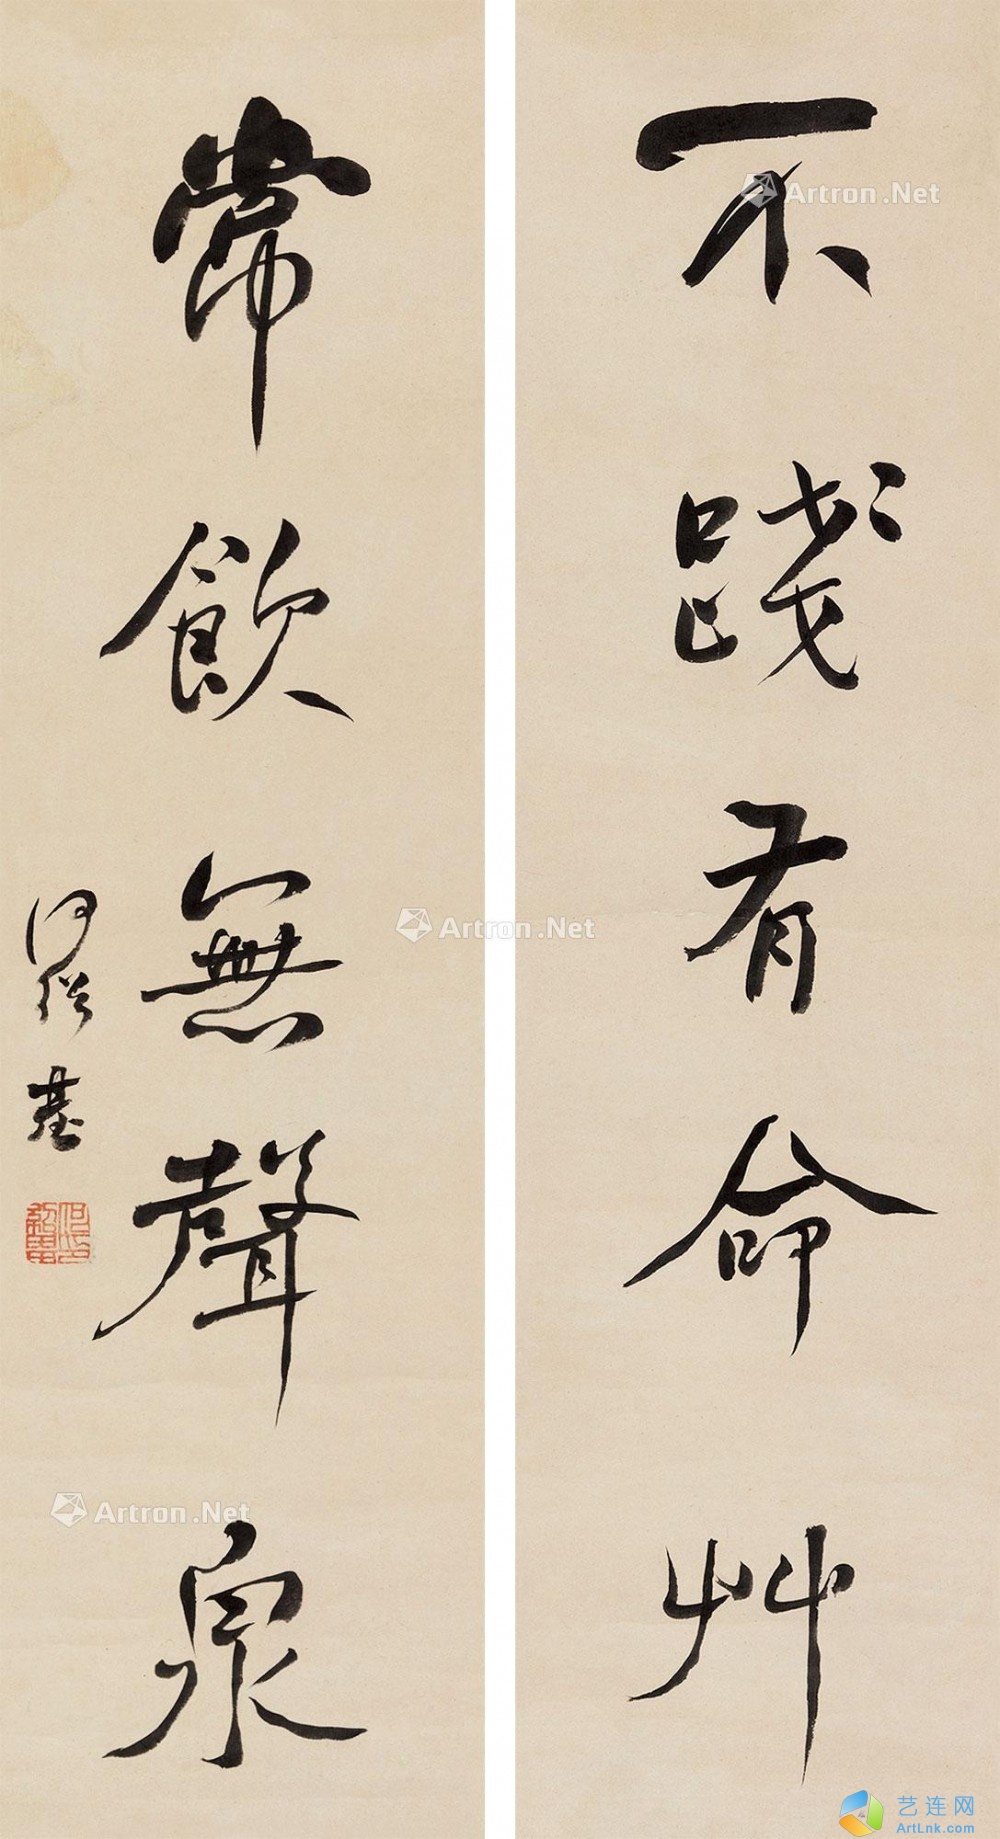 不踐有命艸
常飲無聲泉
何紹基
何紹基印
Artron.Net
Artron.Net
Artron.Net
艺连网
ArtLnk.com